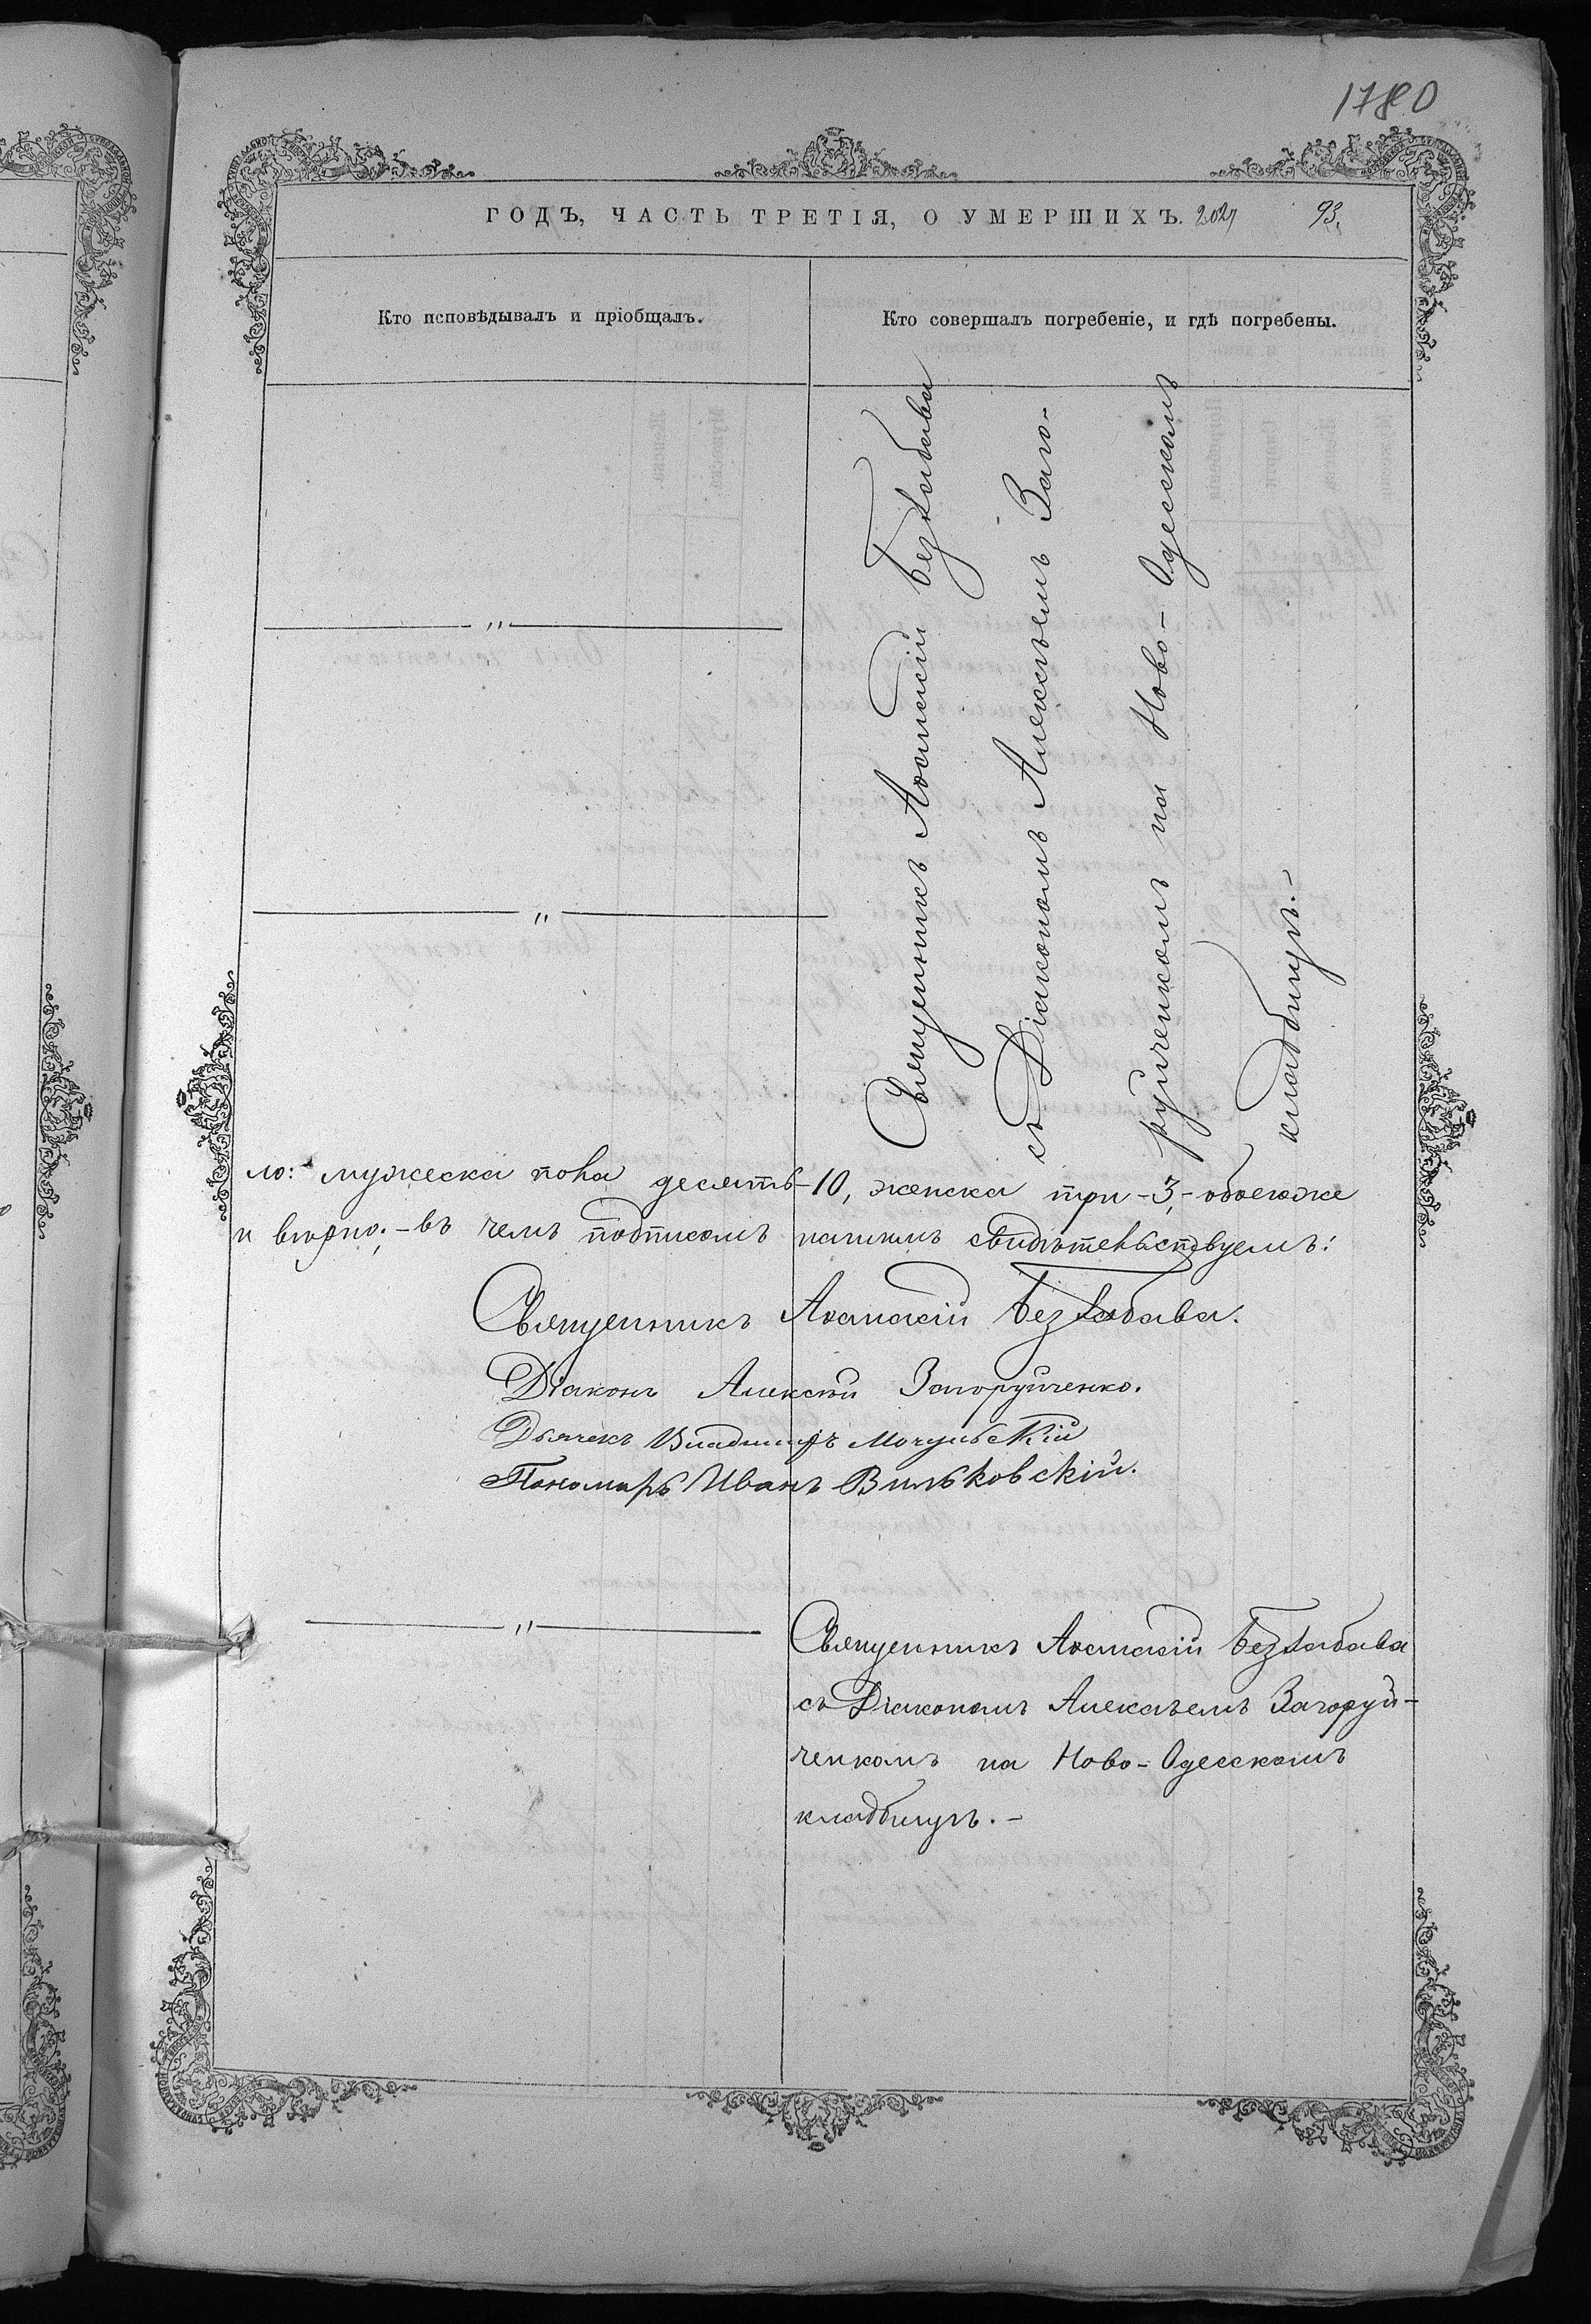 1780
ГОДЪ, ЧАСТЬ ТРЕТІЯ, О УМЕРШИХЪ. 93.
Кто исповѣдывалъ и пріобщалъ.
Кто совершалъ погребеніе, и гдѣ погребены.
Священникъ Аѳанасій Беззабава
съ Діакономъ Алексѣемъ Заго-
руйченкомъ на Ново-Одесскомъ
кладбищѣ.-
ло: мужеска пола десять-10, женска три-3,- обоего же
и вѣрно;-въ чемъ подписомъ нашимъ свидѣтельствуемъ:
Священникъ Аѳанасій Беззабава.
Діаконъ Алексѣй Загоруйченко.
Дьячекъ Владиміръ Мочульскій
Пономарь Иванъ Вильковскій.
Священникъ Аѳанасій Беззабава
съ Діакономъ Алексѣемъ Загоруй-
ченкомъ на Ново-Одесскомъ
кладбищѣ.-